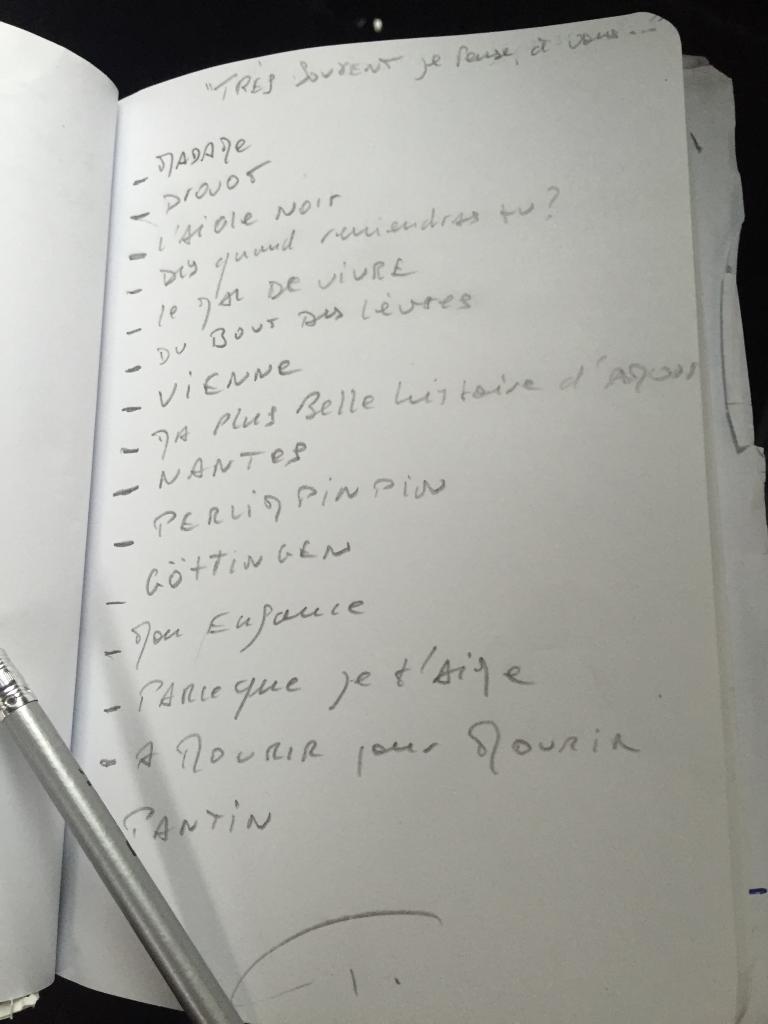 "TRÈS SOUVENT je pense, à vous..."
- MADAME
- DROUOT
- L'AIGLE NOIR
- DIS quand reviendras tu?
- le MAL DE VIVRE
- DU BOUT DES lèvres
- VIENNE
- MA PLUS Belle histoire d'AMOUR
- NANTES
- PERLIMPINPIN
- GÖTTINGEN
- Mon ENfance
- PARCEque je t'AIME
- A MOURIR pour MOURIR
PANTIN